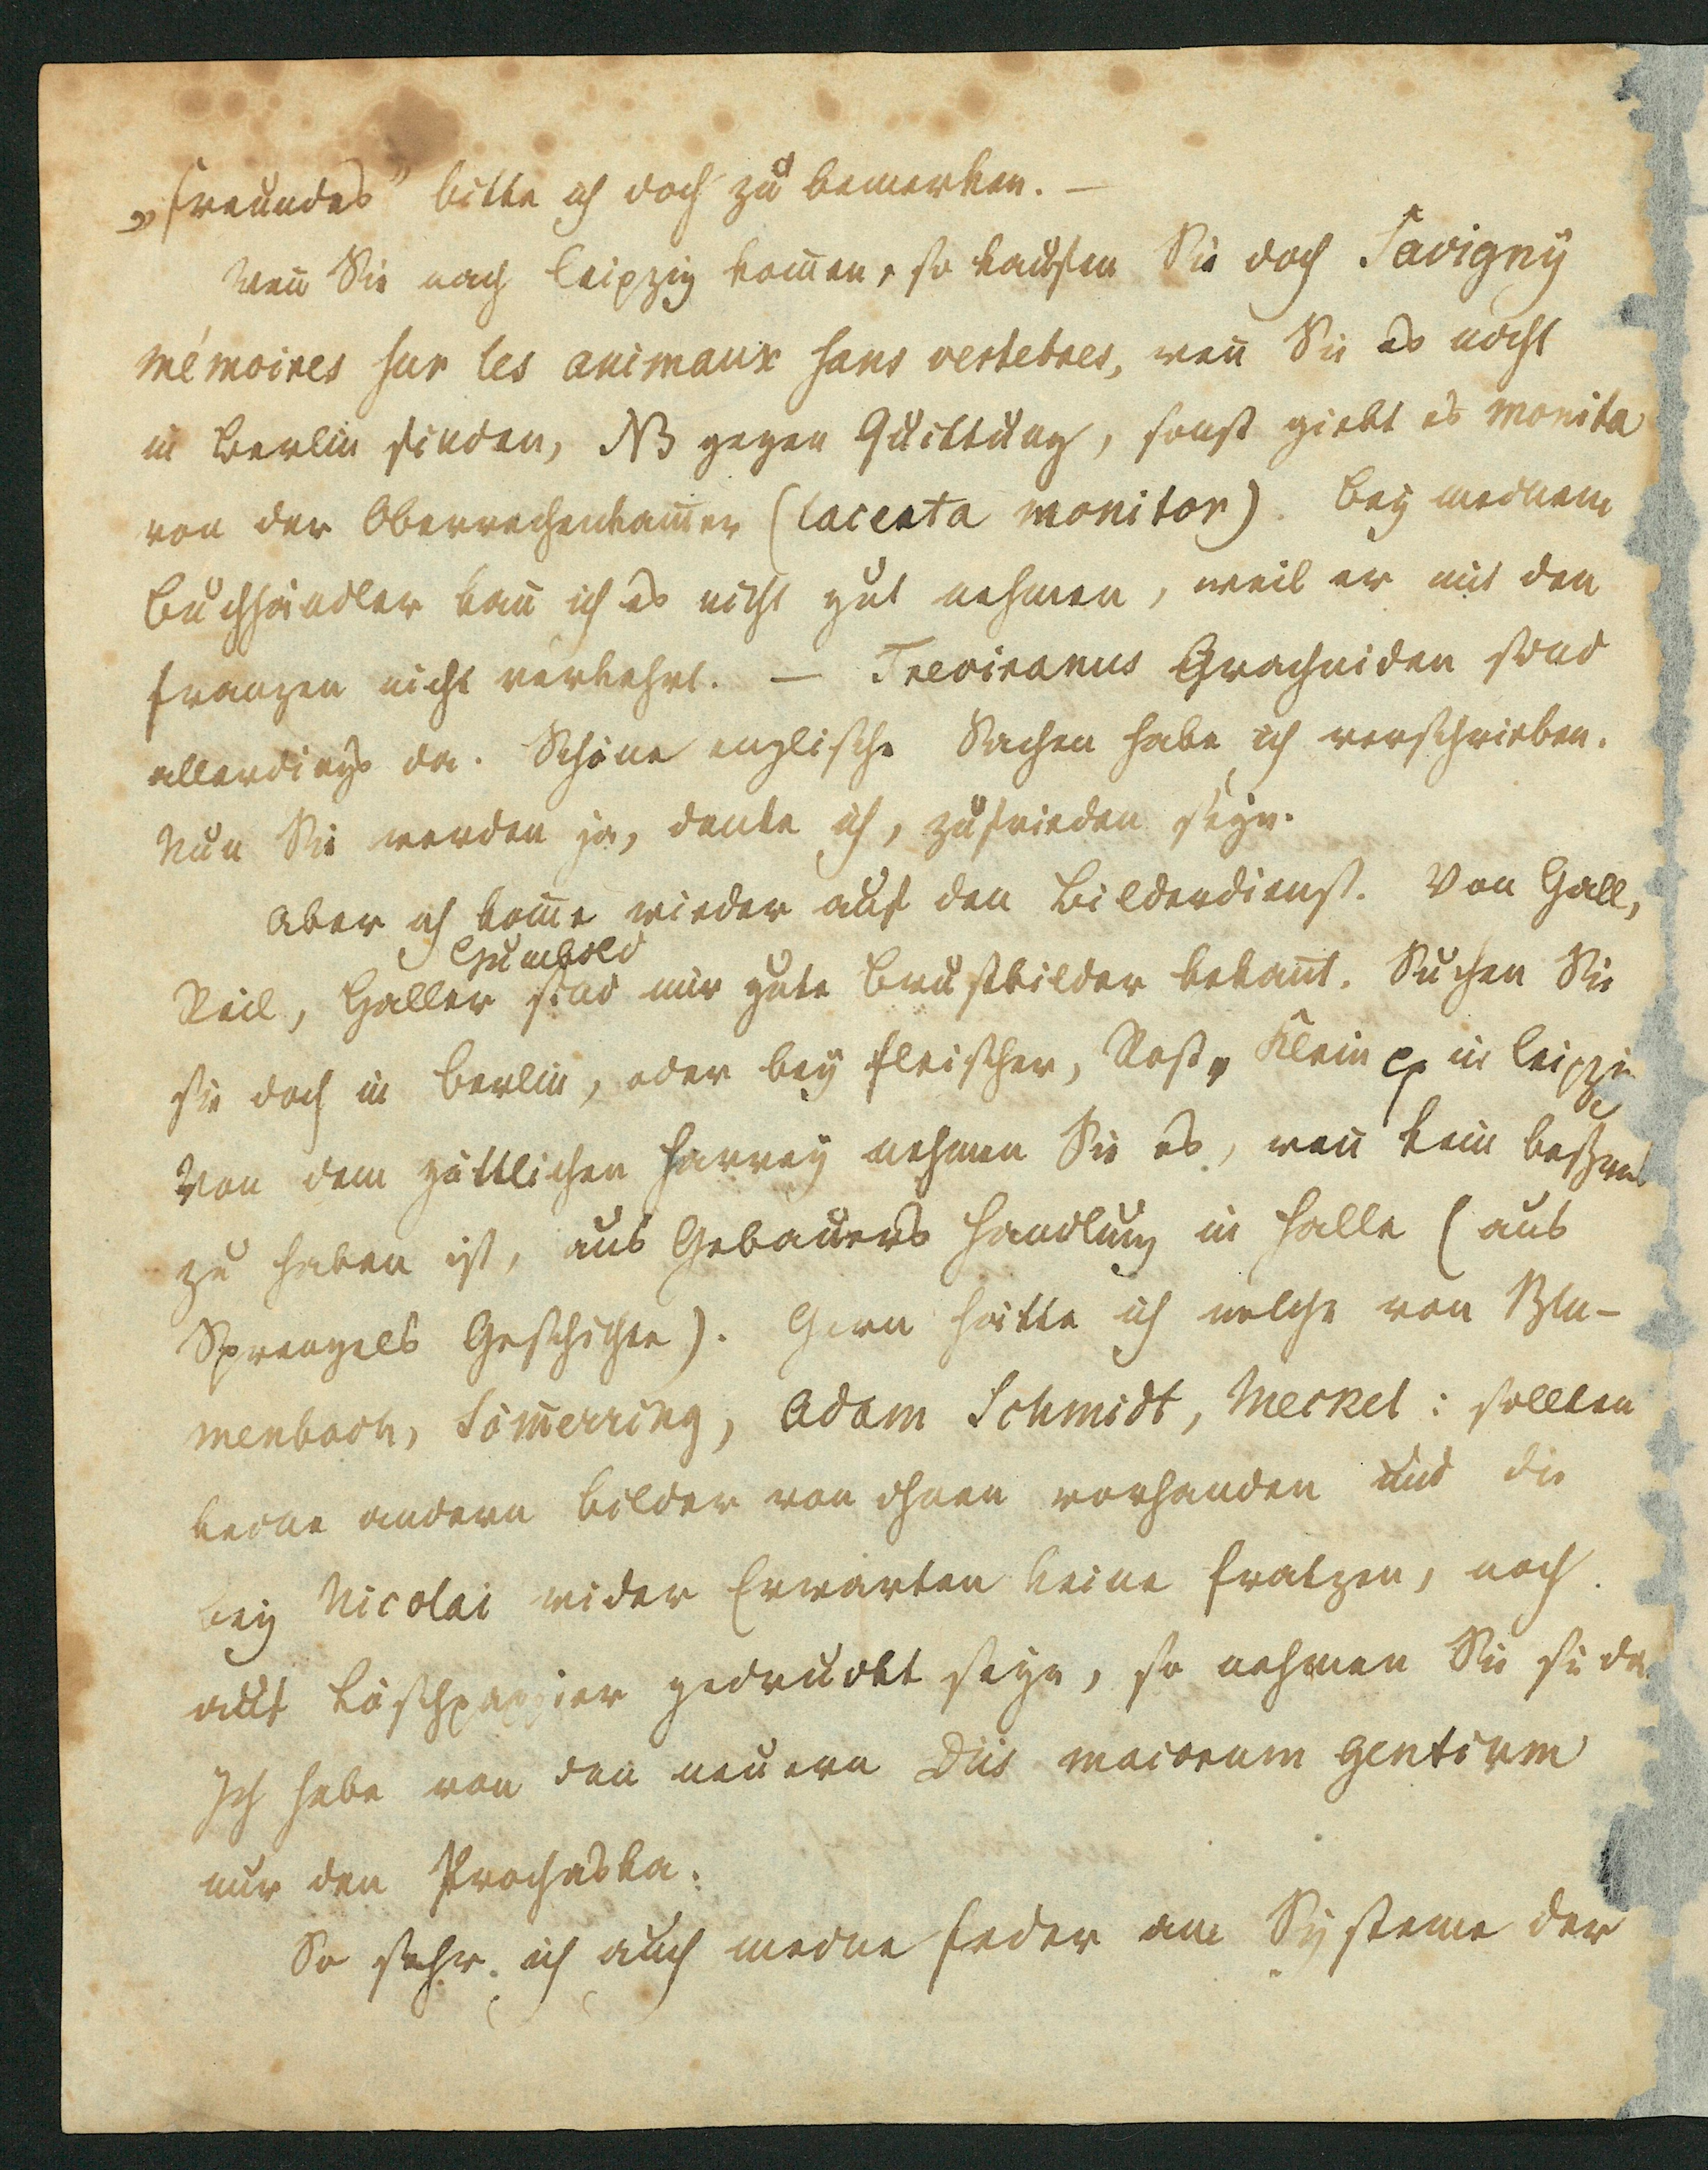 „Freundes" bitte ich doch zu bemerken. —
Weñ Sie nach Leipzig kom̃en, so kaufen Sie doch Savigny
mémoires sur les animaux sans vertebres, weñ Sie es nicht
in Berlin finden, NB gegen Quittung, sonst giebt es monita
von der Oberrechenkam̃er (lacerta monitor). Bey meinem
Buchhändler kañ ich es nicht gut nehmen, weil er mit den
Franzen nicht verkehrt. — Treviranus Arachniden sind
allerdings da. Schöne englische Sachen habe ich verschrieben.
Nun Sie werden ja, denke ich, zufrieden seyn.
Aber ich kom̃e wieder auf den Bilderdienst. Von Gall,
Humbold
Reil, Haller sind mir gute Brustbilder bekañt. Suchen Sie
sie doch in Berlin, oder bey Fleischer, Rost, Klein in Leipzig
Von dem göttlichen Harvey nehmen Sie es, weñ kein beßres
zu haben ist, aus Gebauers Handlung in Halle (aus
Sprengels Geschichte). Gern hätte ich welche von Blu-
menbach, Söm̃erring, Adam Schmidt, Meckel: sollten
keine andern Bilder von ihnen vorhanden und die
bey Nicolai wider Erwarten keine Fratzen, noch
auf Löschpapier gedruckt seyn, so nehmen Sie sie da.
Ich habe von den neuern Diis maiorum gentium
nur den Prochaska.
So sehr ich auch meine Feder am Systeme der